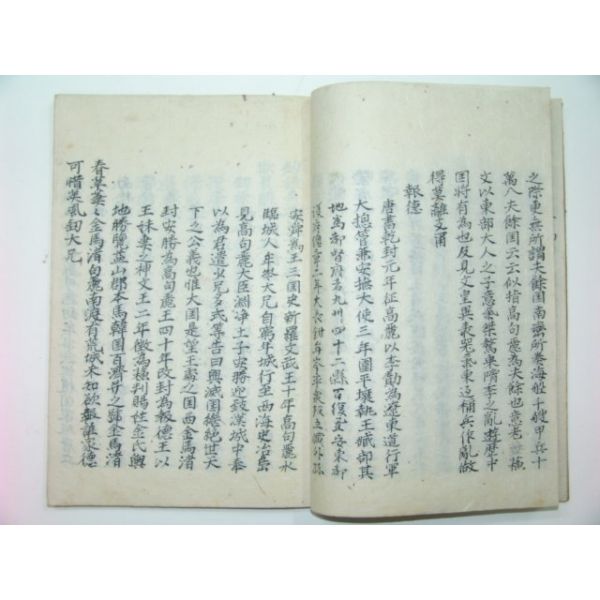 之際東無所謂夫餘国南蛮所奏海船千艘甲兵十
萬入夫餘国云云似指高句麗為夫餘也意者
文以東部大人之子意氣桀驁乘隋季之亂遊歷中
国將有為也及見文皇與表東还稱兵作亂做
得莫離支甭
報德
唐書乾封元年征高麗以李勣為遼東道行軍
大總管兼安撫大使三年圍平壤執王臧部其
地為都督府者九州四十二縣百復置安東都
護府總章二年大長鉗牟岑率衆反立藏外孫
安舜爲王三国史新羅文武王十年高句麗水
臨城人牟岑大兄自窮牟城行至西海史冶島
見高句麗大臣淵浄土子安勝迎致漢城中奉
以為君遣小兄多式等告曰興滅国繼絶世天
下之公義也惟大国是望王處之国西金馬渚
封安勝為高句麗王四十年改封為報德王以
王妹妻之神文王二年徵為蘇判賜住金氏輿
地勝覽益山郡本馬韓国百濟号之號金馬渚
春草萋〻金馬渚句麗南渡有荒城未知欲報誰家德
可惜英風釰大兄